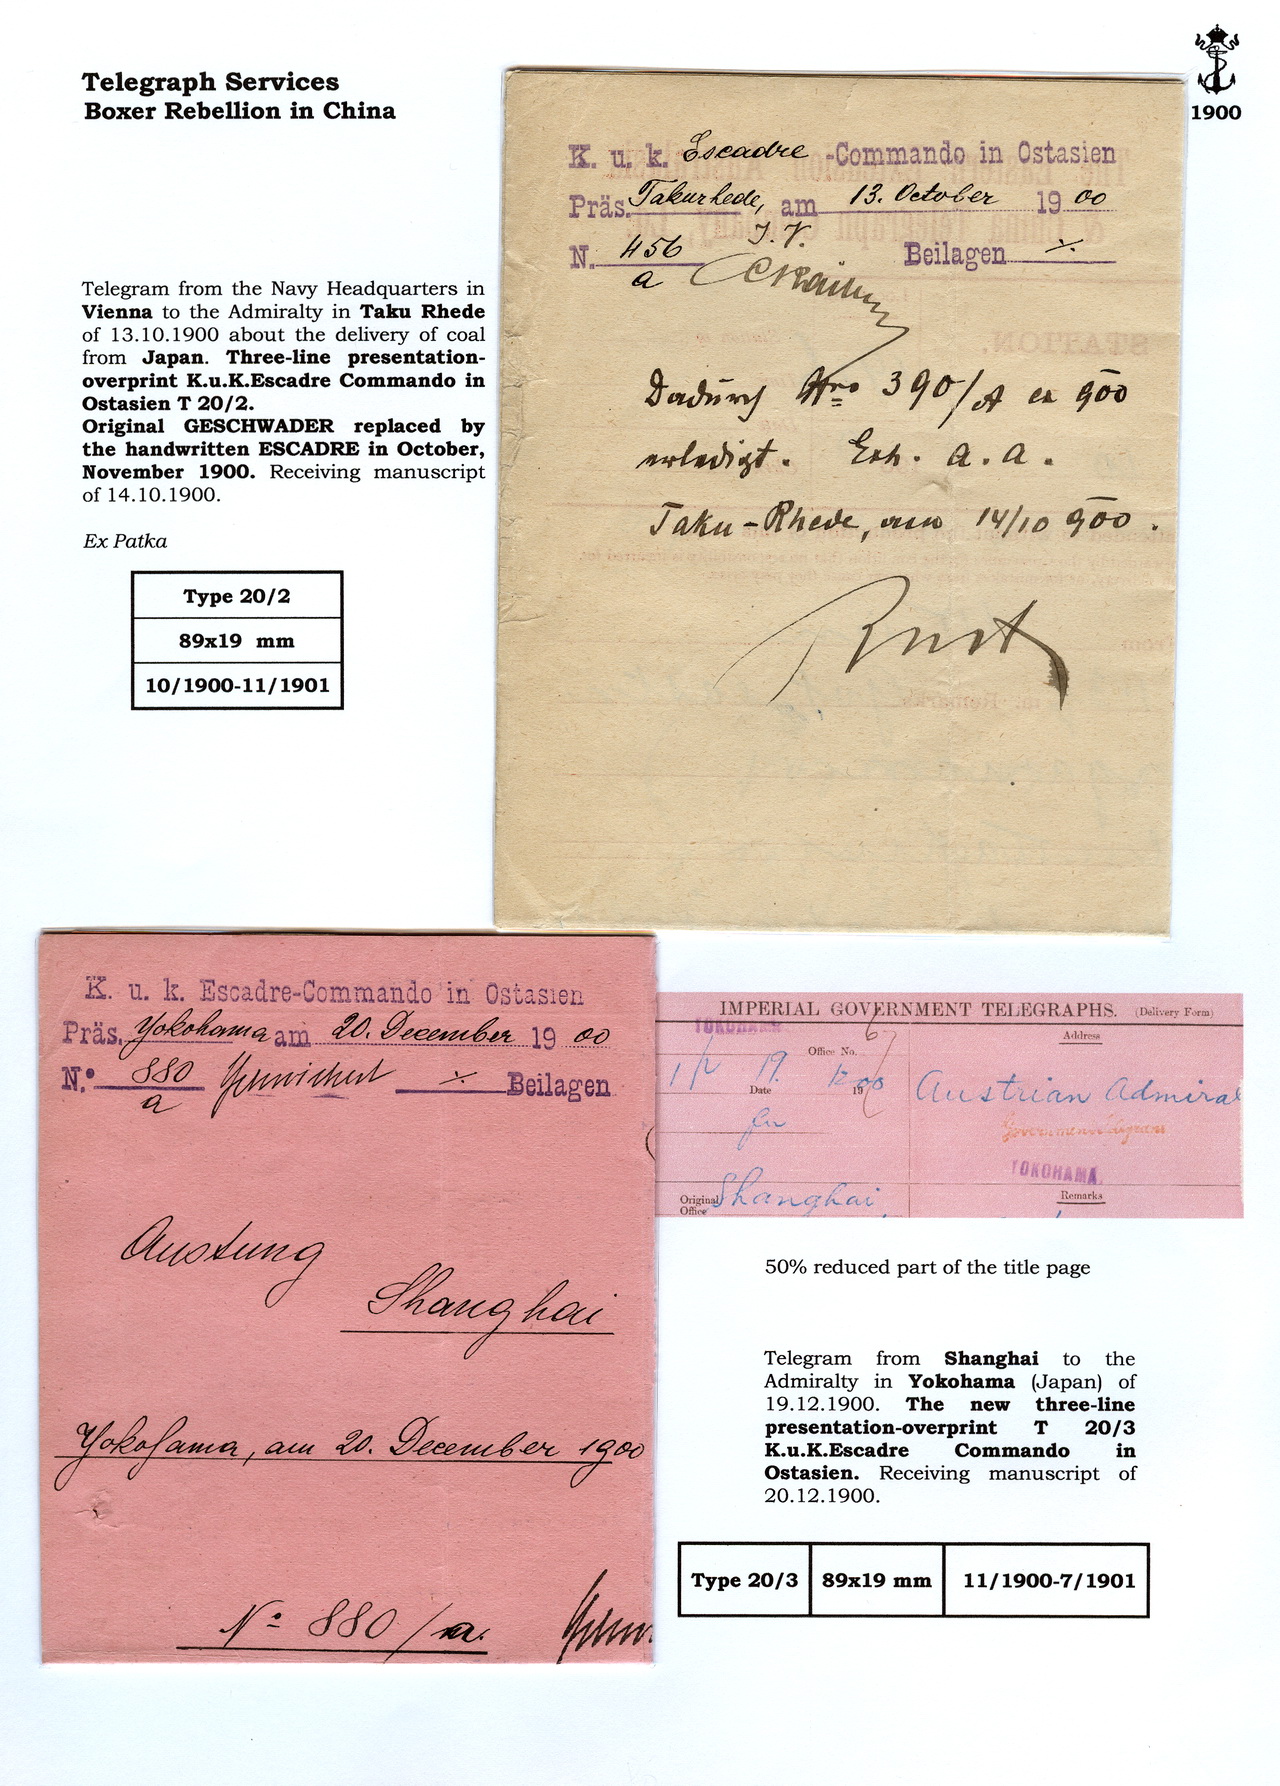 Telegraph Services
Boxer Rebellion in China
1900
Telegram from the Navy Headquarters in
Vienna to the Admiralty in Taku Rhede
of 13.10.1900 about the delivery of coal
from Japan. Three-line presentation-
overprint K.u.K.Escadre Commando in
Ostasien T 20/2.
Original GESCHWADER replaced by
the handwritten ESCADRE in October,
November 1900. Receiving manuscript
of 14.10.1900.
Ex Patka
Type 20/2
89x19 mm
10/1900-11/1901
K. u. k. Escadre -Commando in Ostasien
Präs. Takurhede, am 13. October 1900
N. 456 a J. V. Beilagen ·/.
Dadurch Nro 390/A ex 900
erledigt. Exh. a. a.
Taku-Rhede, am 14/10 900.
K. u. k. Escadre-Commando in Ostasien
Präs. Yokohama am 20. December 1900
N.° 880 a ·/. Beilagen
Shanghai
Yokohama, am 20. December 1900
N° 880/a.
IMPERIAL GOVERNMENT TELEGRAPHS. (Delivery Form)
YOKOHAMA
Office No.
Address
19
Date
19
Austrian Admiral
Government Telegram
YOKOHAMA.
Original
Office
Shanghai
Remarks
50% reduced part of the title page
Telegram from Shanghai to the
Admiralty in Yokohama (Japan) of
19.12.1900. The new three-line
presentation-overprint T 20/3
K.u.K.Escadre Commando in
Ostasien. Receiving manuscript of
20.12.1900.
Type 20/3 89x19 mm 11/1900-7/1901